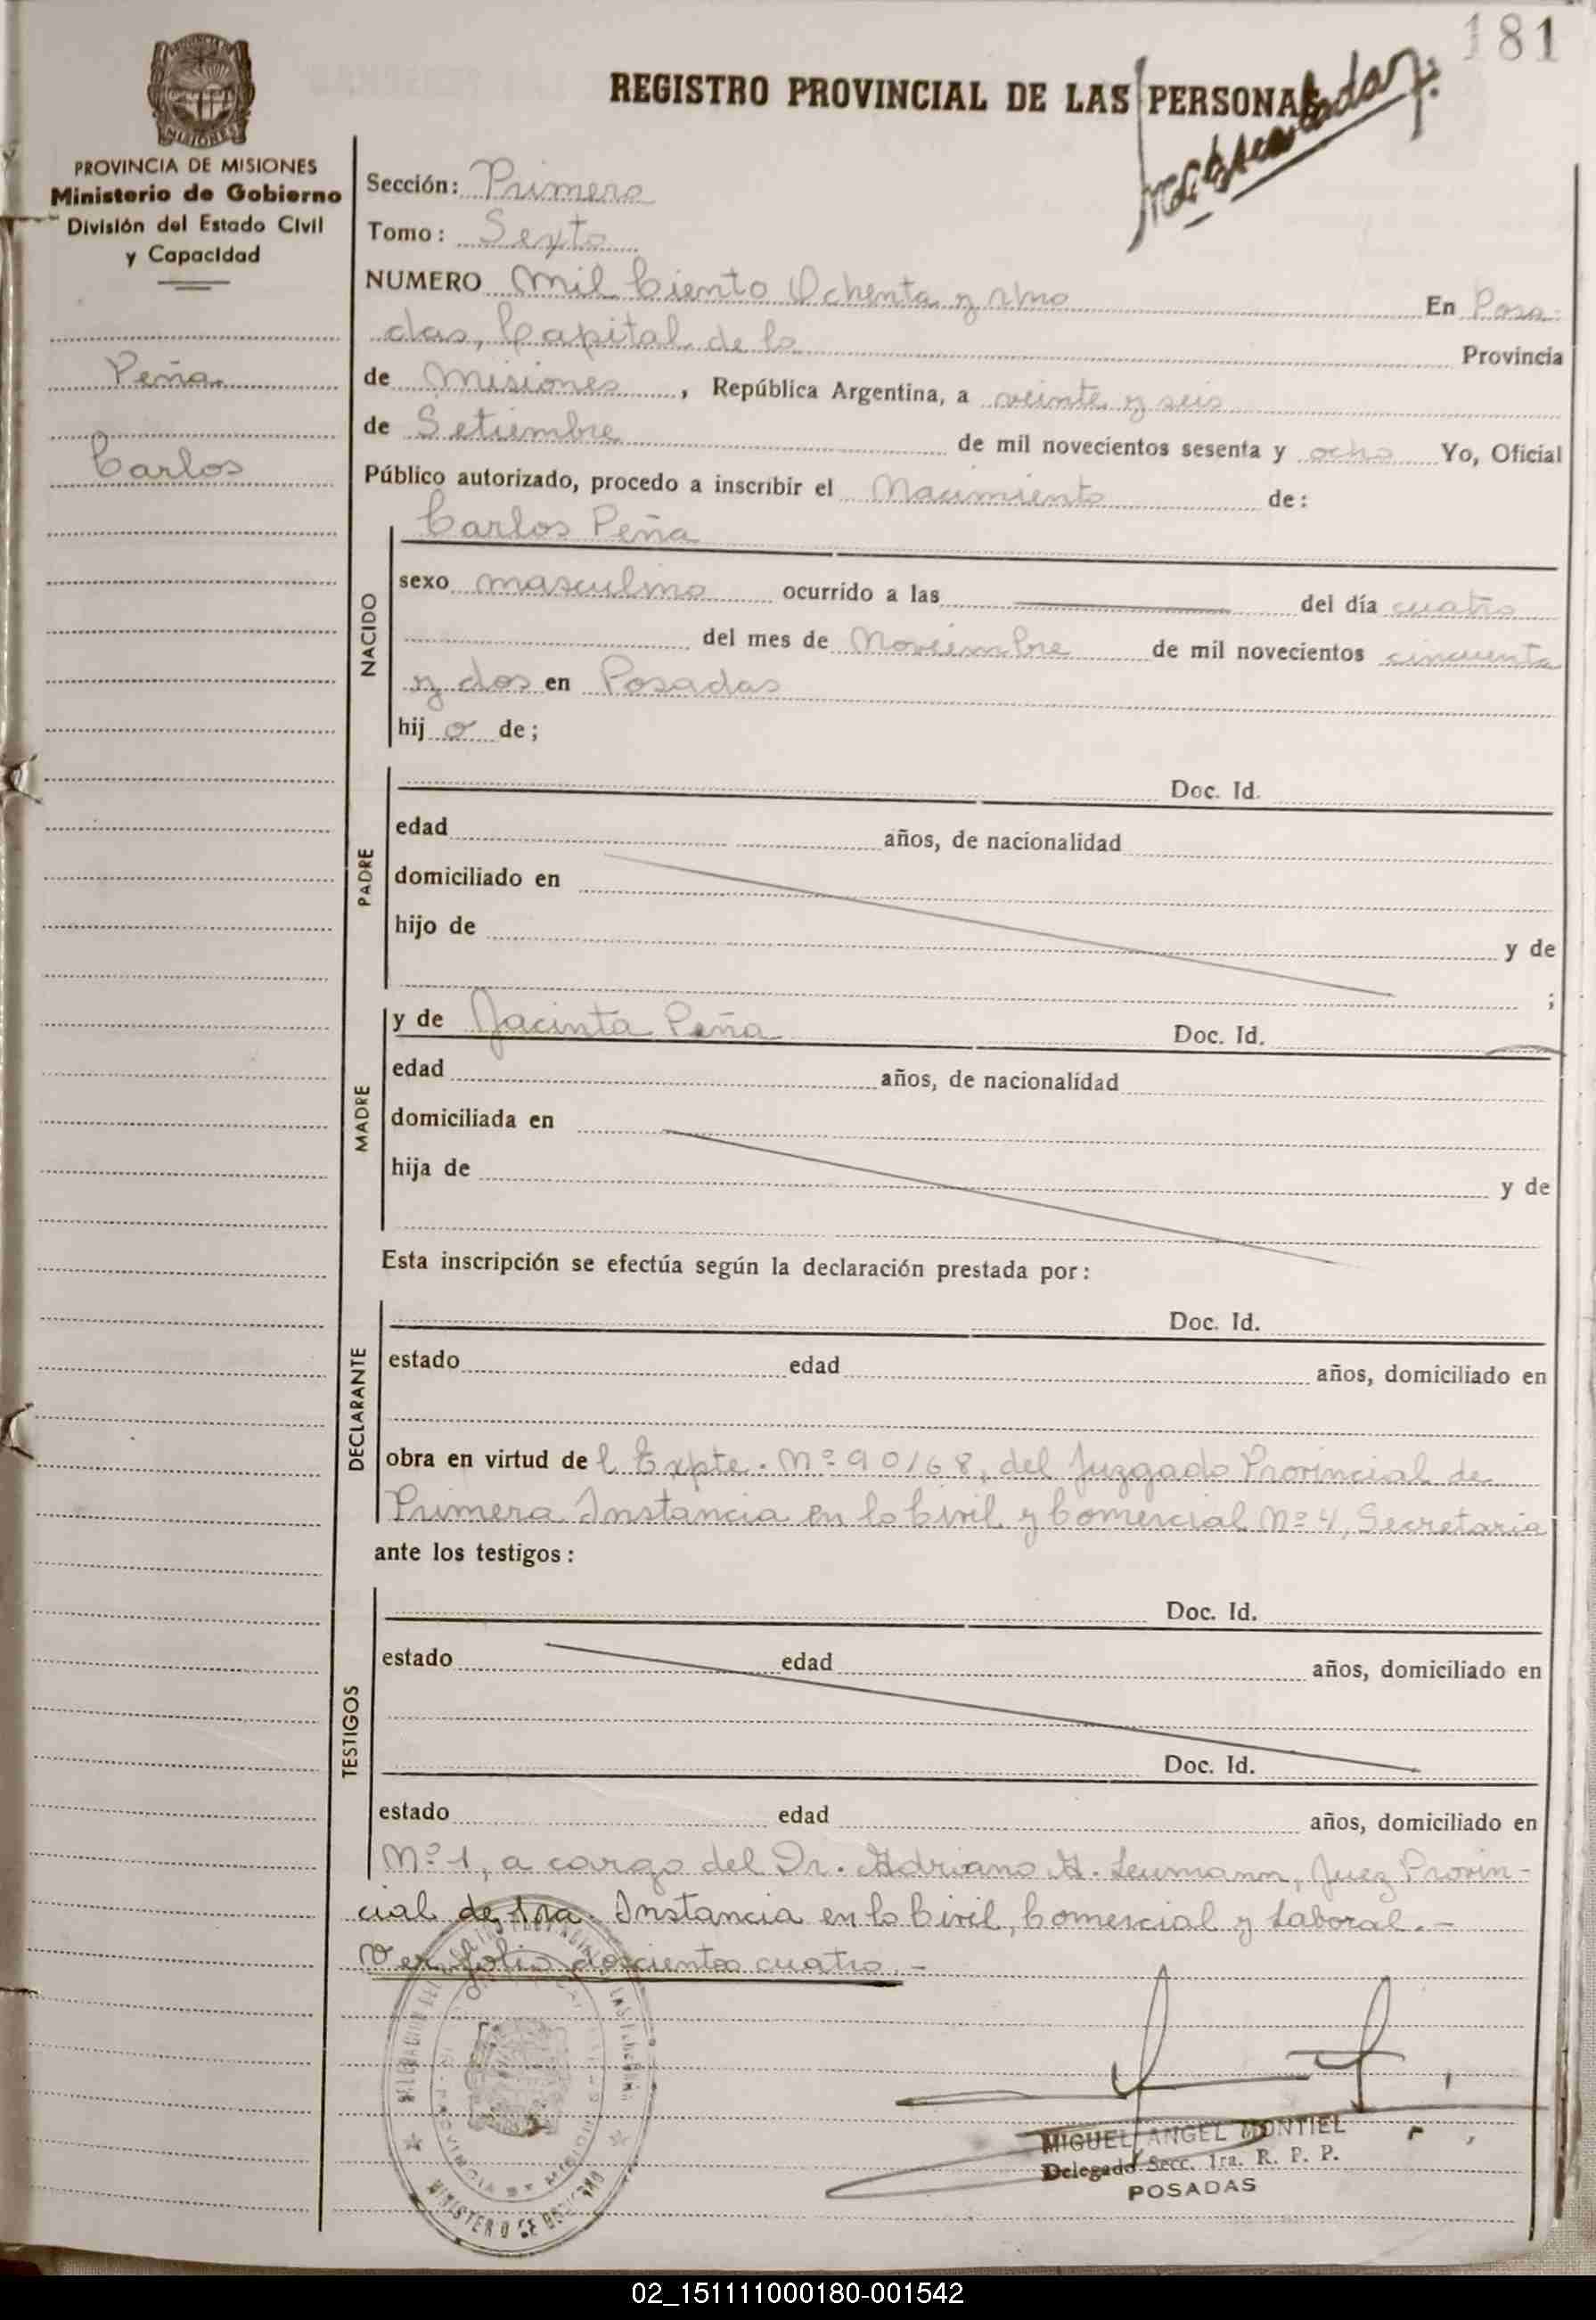 181
REGISTRO PROVINCIAL DE LAS PERSONAS
PROVINCIA DE MISIONES
Ministerio de Gobierno
División del Estado Civil
y Capacidad
Peña
Carlos
Sección: Primera
Tomo: Sexto
NUMERO Mil Ciento Ochenta y Uno En Posa-
das, Capital de la Provincia
de Misiones, República Argentina, a veinte y seis
de Setiembre de mil novecientos sesenta y ocho Yo, Oficial
Público autorizado, procedo a inscribir el Nacimiento de:
NACIDO
Carlos Peña
sexo masculino ocurrido a las del día cuatro
del mes de Noviembre de mil novecientos cincuenta
y dos en Posadas
hij o de;
PADRE
Doc. Id.
edad años, de nacionalidad
domiciliado en
hijo de y de
;
MADRE
y de Jacinta Peña Doc. Id.
edad años, de nacionalidad
domiciliada en
hija de y de
Esta inscripción se efectúa según la declaración prestada por:
DECLARANTE
Doc. Id.
estado edad años, domiciliado en
obra en virtud de l Expte. Nº 90/68, del Juzgado Provincial de
Primera Instancia en lo Civil y Comercial Nº 4, Secretaria
ante los testigos:
TESTIGOS
Doc. Id.
estado edad años, domiciliado en
Doc. Id.
estado edad años, domiciliado en
Nº 1, a cargo del Dr. Adriano A. Leumann, Juez Provin-
cial de 1ra. Instancia en lo Civil, Comercial y Laboral.-
Ver folio doscientos cuatro.-
MINISTERIO DE GOBIERNO
PROVINCIA DE MISIONES
MIGUEL ANGEL MONTIEL
Delegado Secc. 1ra. R. P. P.
POSADAS
02_151111000180-001542